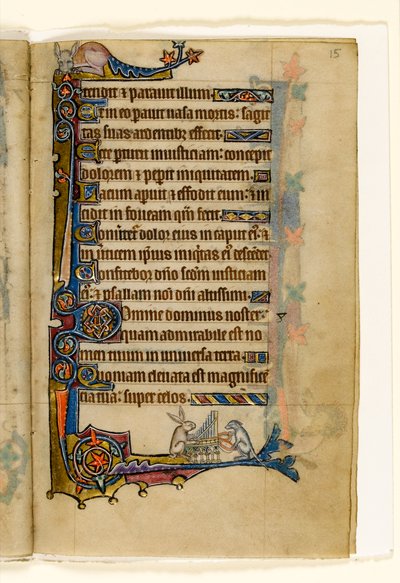 15
tendit & parauit illum.
Et in eo pauit uasa mortis: sagit
tas suas ardentibꝫ effecit.
Ecce parturit iniusticiam: concepit
dolorem & peperit iniquitatem.
Lacum aperuit & effodit eum: & in
cidit in foueam quā fecit.
Conuertetᷣ dolor eius in caput eiꝰ &
in uerticem ipsius iniqͥtas eiꝰ descendet
Confitebor dño scdm iusticiam
eiꝰ & psallam noī dñi altissimi.
Domine dominus noster:
quam admirabile est no
men tuum in uniuersa terra
Quoniam eleuata est magnificē
cia tua: super celos.